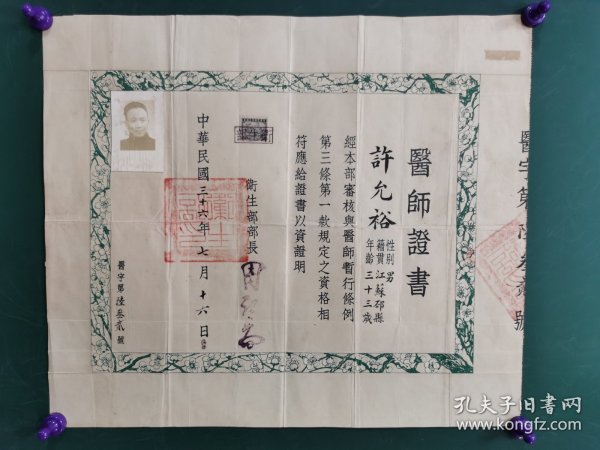 醫師證書
許允裕
性別男
籍貫江蘇邳縣
年齡三十三歲
經本部審核與醫師暫行條例
第三條第一款規定之資格相
符應給證書以資證明
衛生部部長
中華民國三十六年七月十六日
醫字第陸叁貳號
孔夫子旧書网
www.kongfz.com